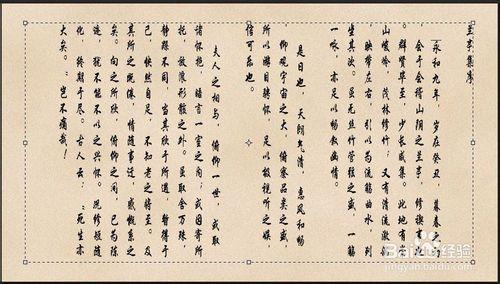 兰亭集序
永和九年，岁在癸丑，暮春之
会于会稽山阴之兰亭，修禊事也
群贤毕至，少长咸集。此地有
山峻岭，茂林修竹；又有清流激
映带左右，引以为流觞曲水，列
坐其次。虽无丝竹管弦之盛，一觞
一咏，亦足以畅叙幽情。
是日也，天朗气清，惠风和畅
仰观宇宙之大，俯察品类之盛，
所以游目骋怀，足以极视听之娱，
信可乐也。
夫人之相与，俯仰一世，或取
诸怀抱，晤言一室之内；或因寄所
托，放浪形骸之外。虽取舍万殊，
静躁不同，当其欣于所遇，暂得于
己，快然自足，不知老之将至。及
其所之既倦，情随事迁，感慨系之
矣。向之所欣，俯仰之间，已为陈
迹，犹不能不以之兴怀。况修短随
化，终期于尽。古人云：“死生亦
大矣。”岂不痛哉！
Baidu 经验
jingyan.baidu.com